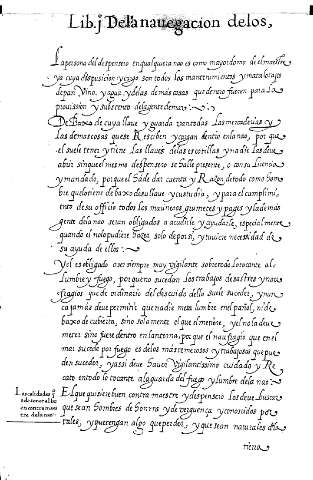 Lib. j Dela nauegacion delos,
La persona del despensero en qualquiera nao es como mayordomo del maestre
ya cuya disposicion y cargo son todos los mantenimientos y matalotajes
de pan, Vino. y agua y delas demas cosas que dentro fueren para la
prouission y sustento dela gente de mar.
De Baxo de cuya llave y guarda van todas las mercadurias y
las demas cosas que se Resciben y cargan dentro en la nao, por que
el suele tener y tiene las llaves delas escotillas y nadie las deue
abrir sin que el mismo despensero se halle presente, o con su licencia
y mandado, porque el ha de dar cuenta y Razon de todo como hombre
que lo tiene de baxo de su llave y custodia, y para el cumplimi.
ento de su officio todos los marineros, grumetes y pages y la demas
gente dela nao seran obligados a acudirle y ayudarle, especialmente
quando el no lo pudiere hazer solo de por si, y tuuiere necessidad de
su ayuda de ellos.
Y el es obligado a ser siempre muy vigilante sobre todo lo tocante al
Lumbre y fuego, porque no sucedan los trabajos desastres y nau
fragios que de ordinario del descuido dello suele suceder, y nun
ca jamas deue permitir que nadie meta lumbre en el pañol, ni de
baxo de cubierta, sino solamente el que el metiere, y el no la deue
meter sino fuere dentro en lanterna, por que el naufragio que en el
mar sucede por fuego es delos mas temerosos y trabajosos que pue
den suceder, y assi deue hauer Vigilantissimo cuidado y Re
cato en todo lo tocante a la guarda del fuego y lumbre dela nao.
Las calidades q
a de tener al bu
en contramaes
tre dela nao.
El que quisiere buen contramaestre y despensero los deue buscar
que sean hombres de honrra y de verguença y conoscidos por
tales, y que tengan algo que perder, y que sean naturales dela
tierra